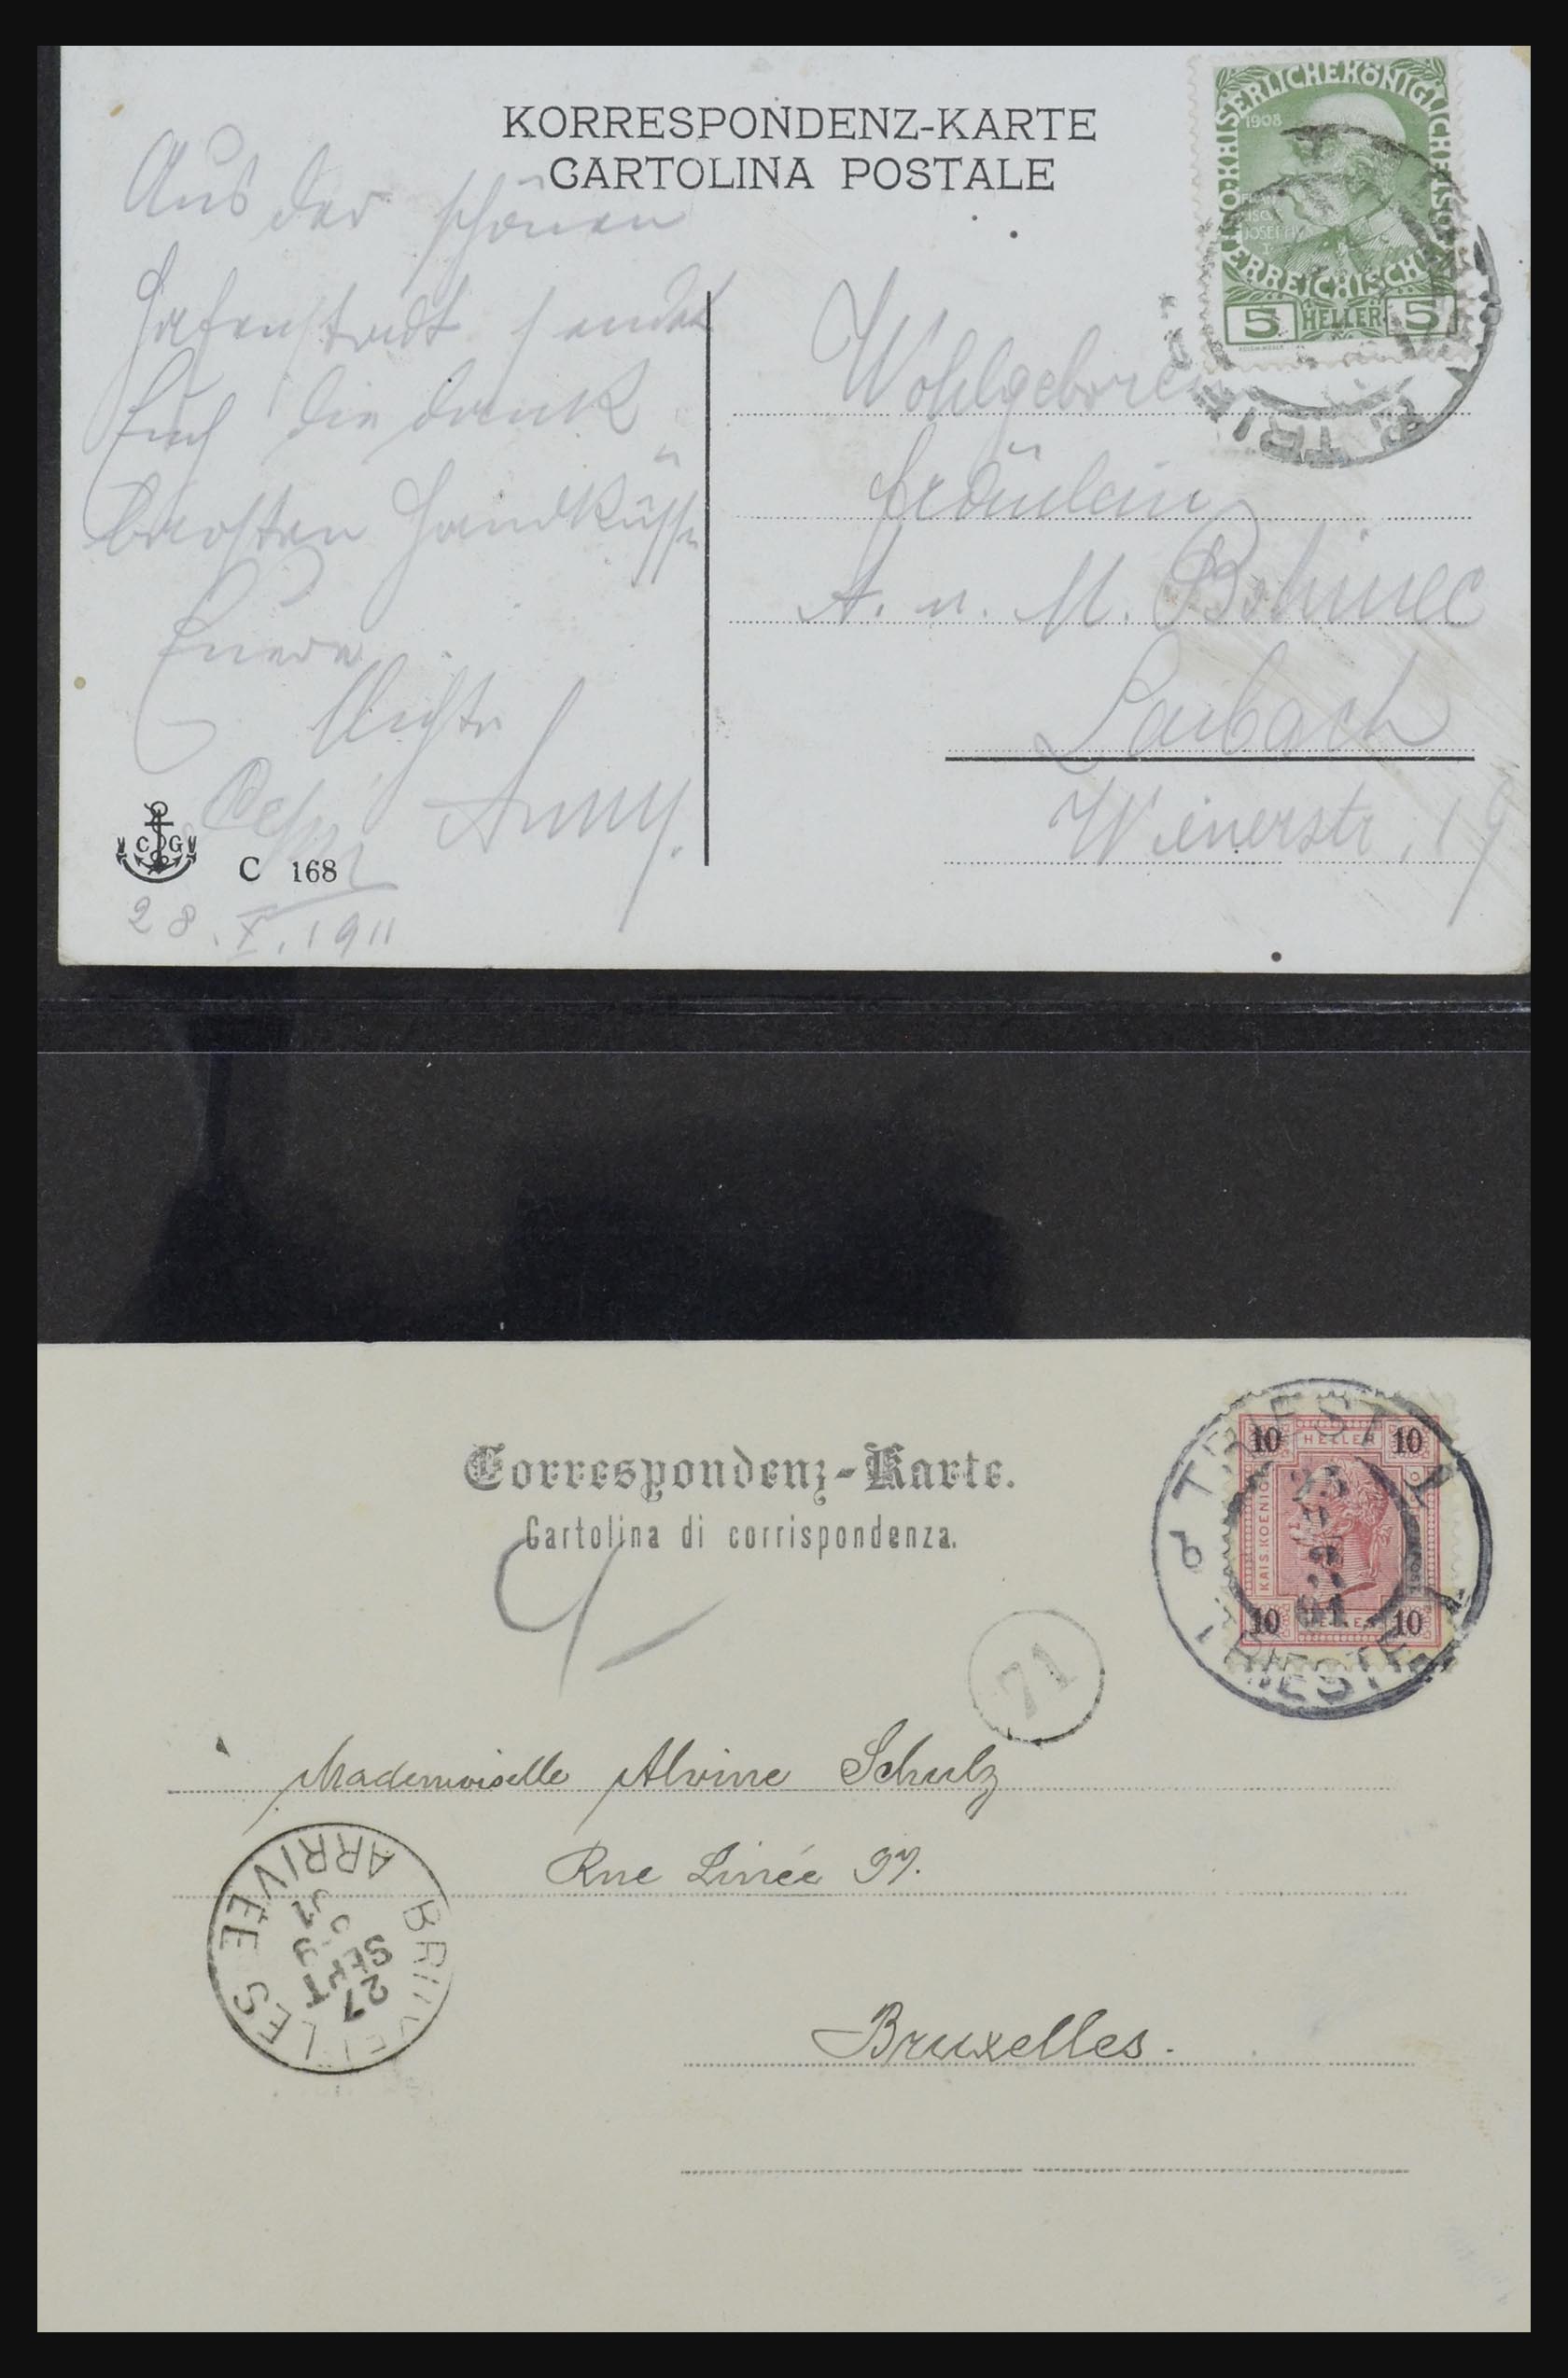 KORRESPONDENZ-KARTE
CARTOLINA POSTALE
Aus der schönen
Hafenstadt sendet
Euch die dank
barsten Handküsse
Euere
Nichte
Anny.
28.X.1911
C G
C 168
KAISERLICHE KÖNIGLICHE ÖSTERREICHISCHE
1908
5 HELLER 5
Wohlgeboren
Fräulein
A. u. M.
Laibach
Wienerstr. 19
Correspondenz-Karte.
Cartolina di corrispondenza.
10 HELLER 10
KAIS. KOENIG
10 HELLER 10
TRIEST
25
9
01
TRIESTE 1
71
Mademoiselle Alvine Schulz
Rue Linée 97.
Bruxelles.
BRUXELLES
ARRIVÉE
27
SEPT